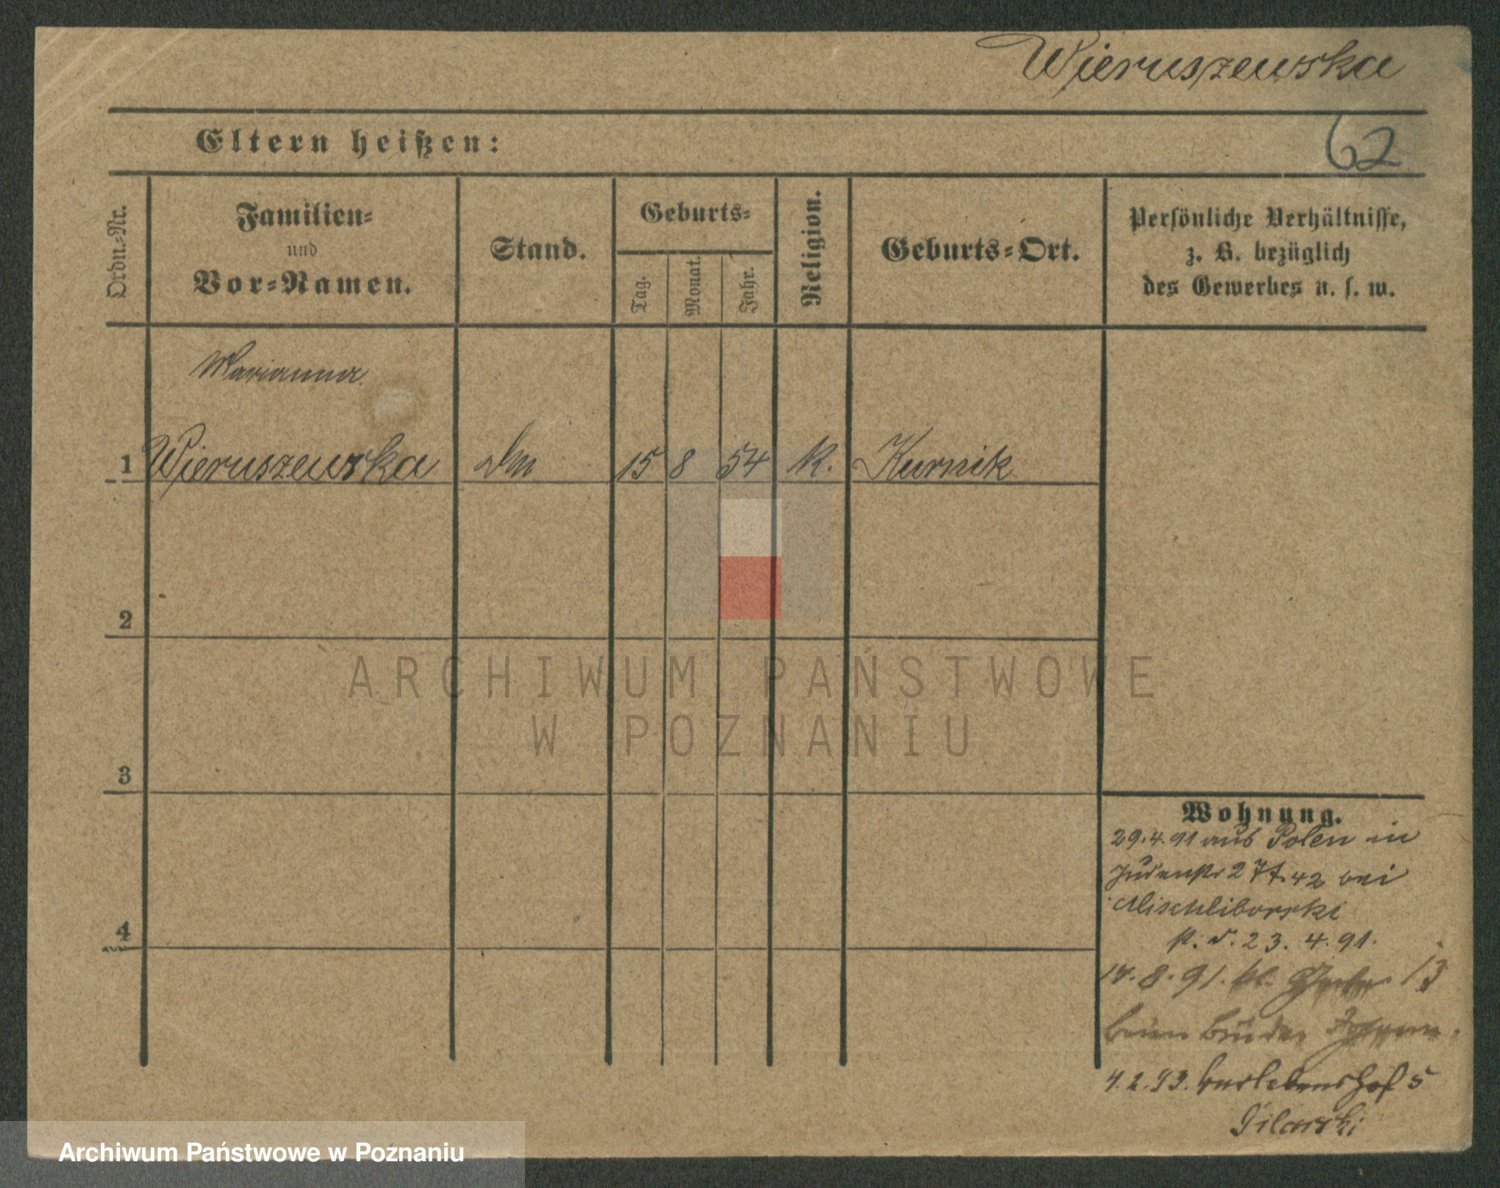 Wieruszewska
62
Eltern heißen:
Ordn.-Nr.
Familien-
und
Vor-Namen.
Stand.
Geburts-
Tag.
Monat.
Jahr.
Religion.
Geburts-Ort.
Persönliche Verhältnisse,
z. B. bezüglich
des Gewerbes u. s. w.
Marianna
1 Wieruszewska 15 8 54 K. Kurnik
2
3
4
Wohnung.
29.4.91 aus Polen in
Judenstr 27 b. 42 bei
23.4.91.
8.91. 13
beim Bruder
4.2.93. 5
Pilarski
ARCHIWUM PAŃSTWOWE
W POZNANIU
Archiwum Państwowe w Poznaniu